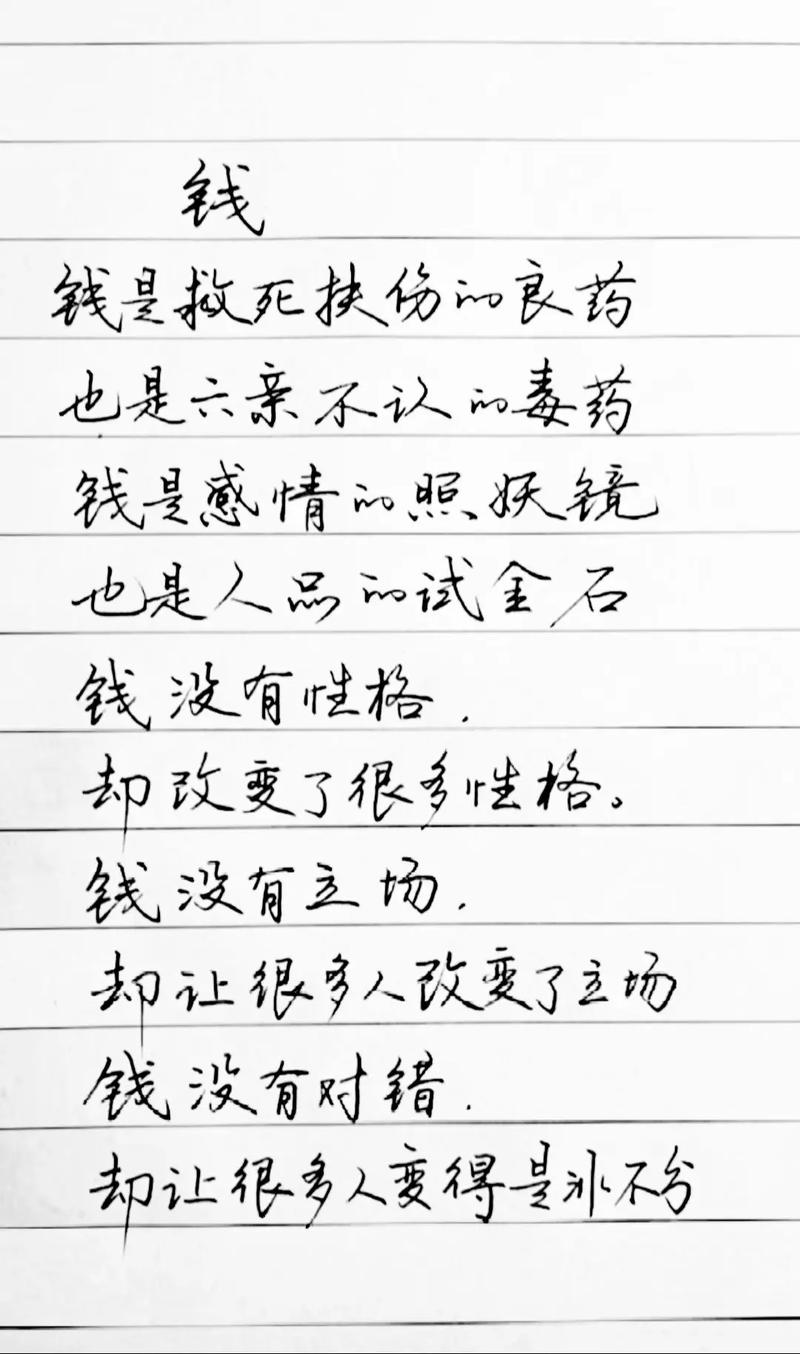 钱
钱是救死扶伤的良药
也是六亲不认的毒药
钱是感情的照妖镜
也是人品的试金石
钱没有性格.
却改变了很多性格。
钱没有立场.
却让很多人改变了立场
钱没有对错.
却让很多人变得是非不分